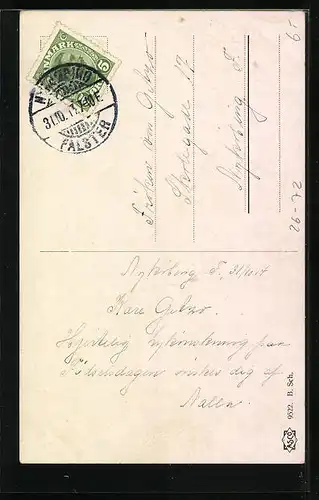 DANMARK 5
NYKJØBING
31.10.17
FALSTER
Frøken von Getzo
Skolegade 17
Nykøbing F.
6-
26-72
Nykøbing F. 31/10 17
Kære Getzo.
Hjertelig Lykønskning paa
Fødselsdagen ønskes dig af
ASCO 9522. B. Sch.